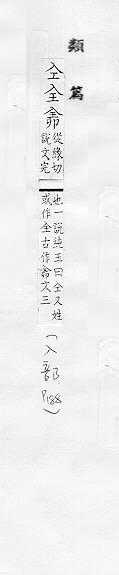 類篇
仝全𠓴從緣切
說文完
也一說純玉曰全又姓
或作全古作𠓴文三
(入部 P188)